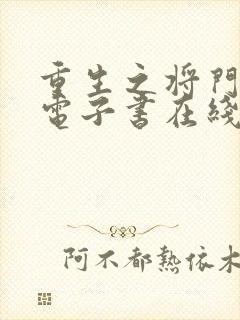 重生之将門
電子書在綫
阿不都熱依木